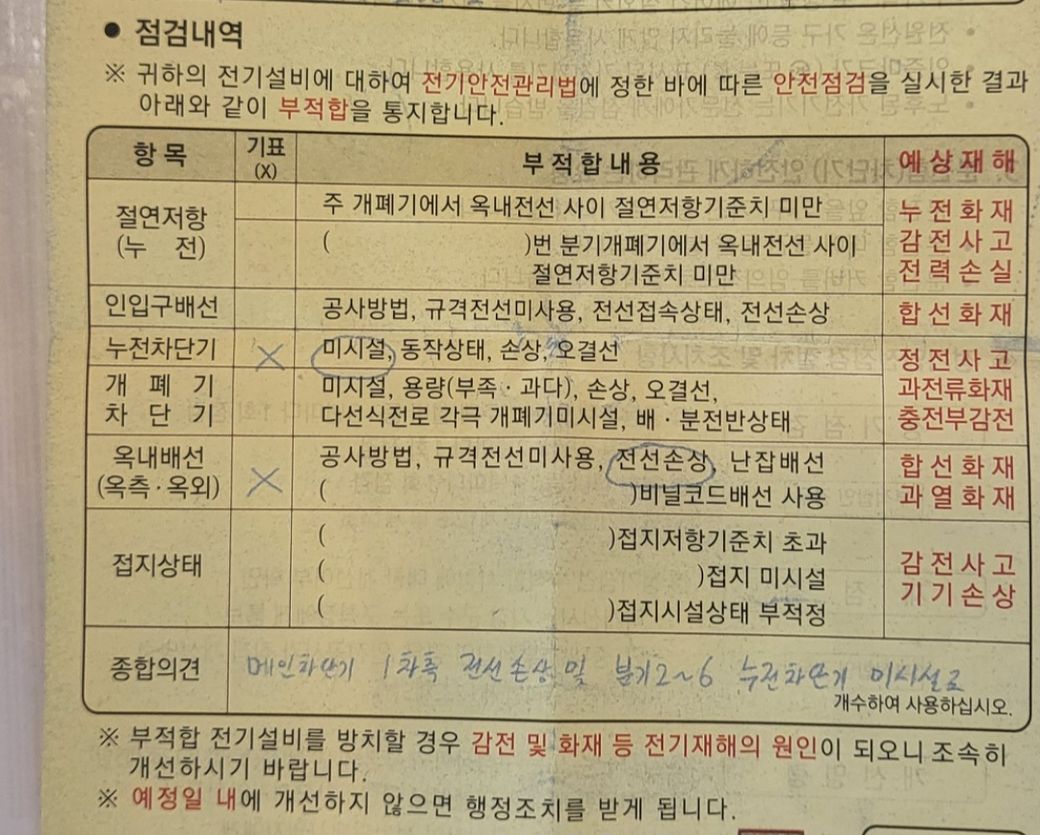 ● 점검내역
※ 귀하의 전기설비에 대하여 전기안전관리법에 정한 바에 따른 안전점검을 실시한 결과
아래와 같이 부적합을 통지합니다.
항목 기표(X) 부적합내용 예상재해
절연저항(누 전) 주 개폐기에서 옥내전선 사이 절연저항기준치 미만 누전화재
( )번 분기개폐기에서 옥내전선 사이 감전사고
절연저항기준치 미만 전력손실
인입구배선 공사방법, 규격전선미사용, 전선접속상태, 전선손상 합선화재
누전차단기 X 미시설, 동작상태, 손상, 오결선 정전사고
개폐기 미시설, 용량(부족·과다), 손상, 오결선, 과전류화재
차단기 다선식전로 각극 개폐기미시설, 배·분전반상태 충전부감전
옥내배선 X 공사방법, 규격전선미사용, 전선손상, 난잡배선 합선화재
(옥측·옥외) ( )비닐코드배선 사용 과열화재
접지상태 ( )접지저항기준치 초과 감전사고
( )접지 미시설 기기손상
( )접지시설상태 부적정
종합의견 메인차단기 1차측 전선손상 및 분기2~6 누전차단기 미시설로
개수하여 사용하십시오.
※ 부적합 전기설비를 방치할 경우 감전 및 화재 등 전기재해의 원인이 되오니 조속히
개선하시기 바랍니다.
※ 예정일 내에 개선하지 않으면 행정조치를 받게 됩니다.